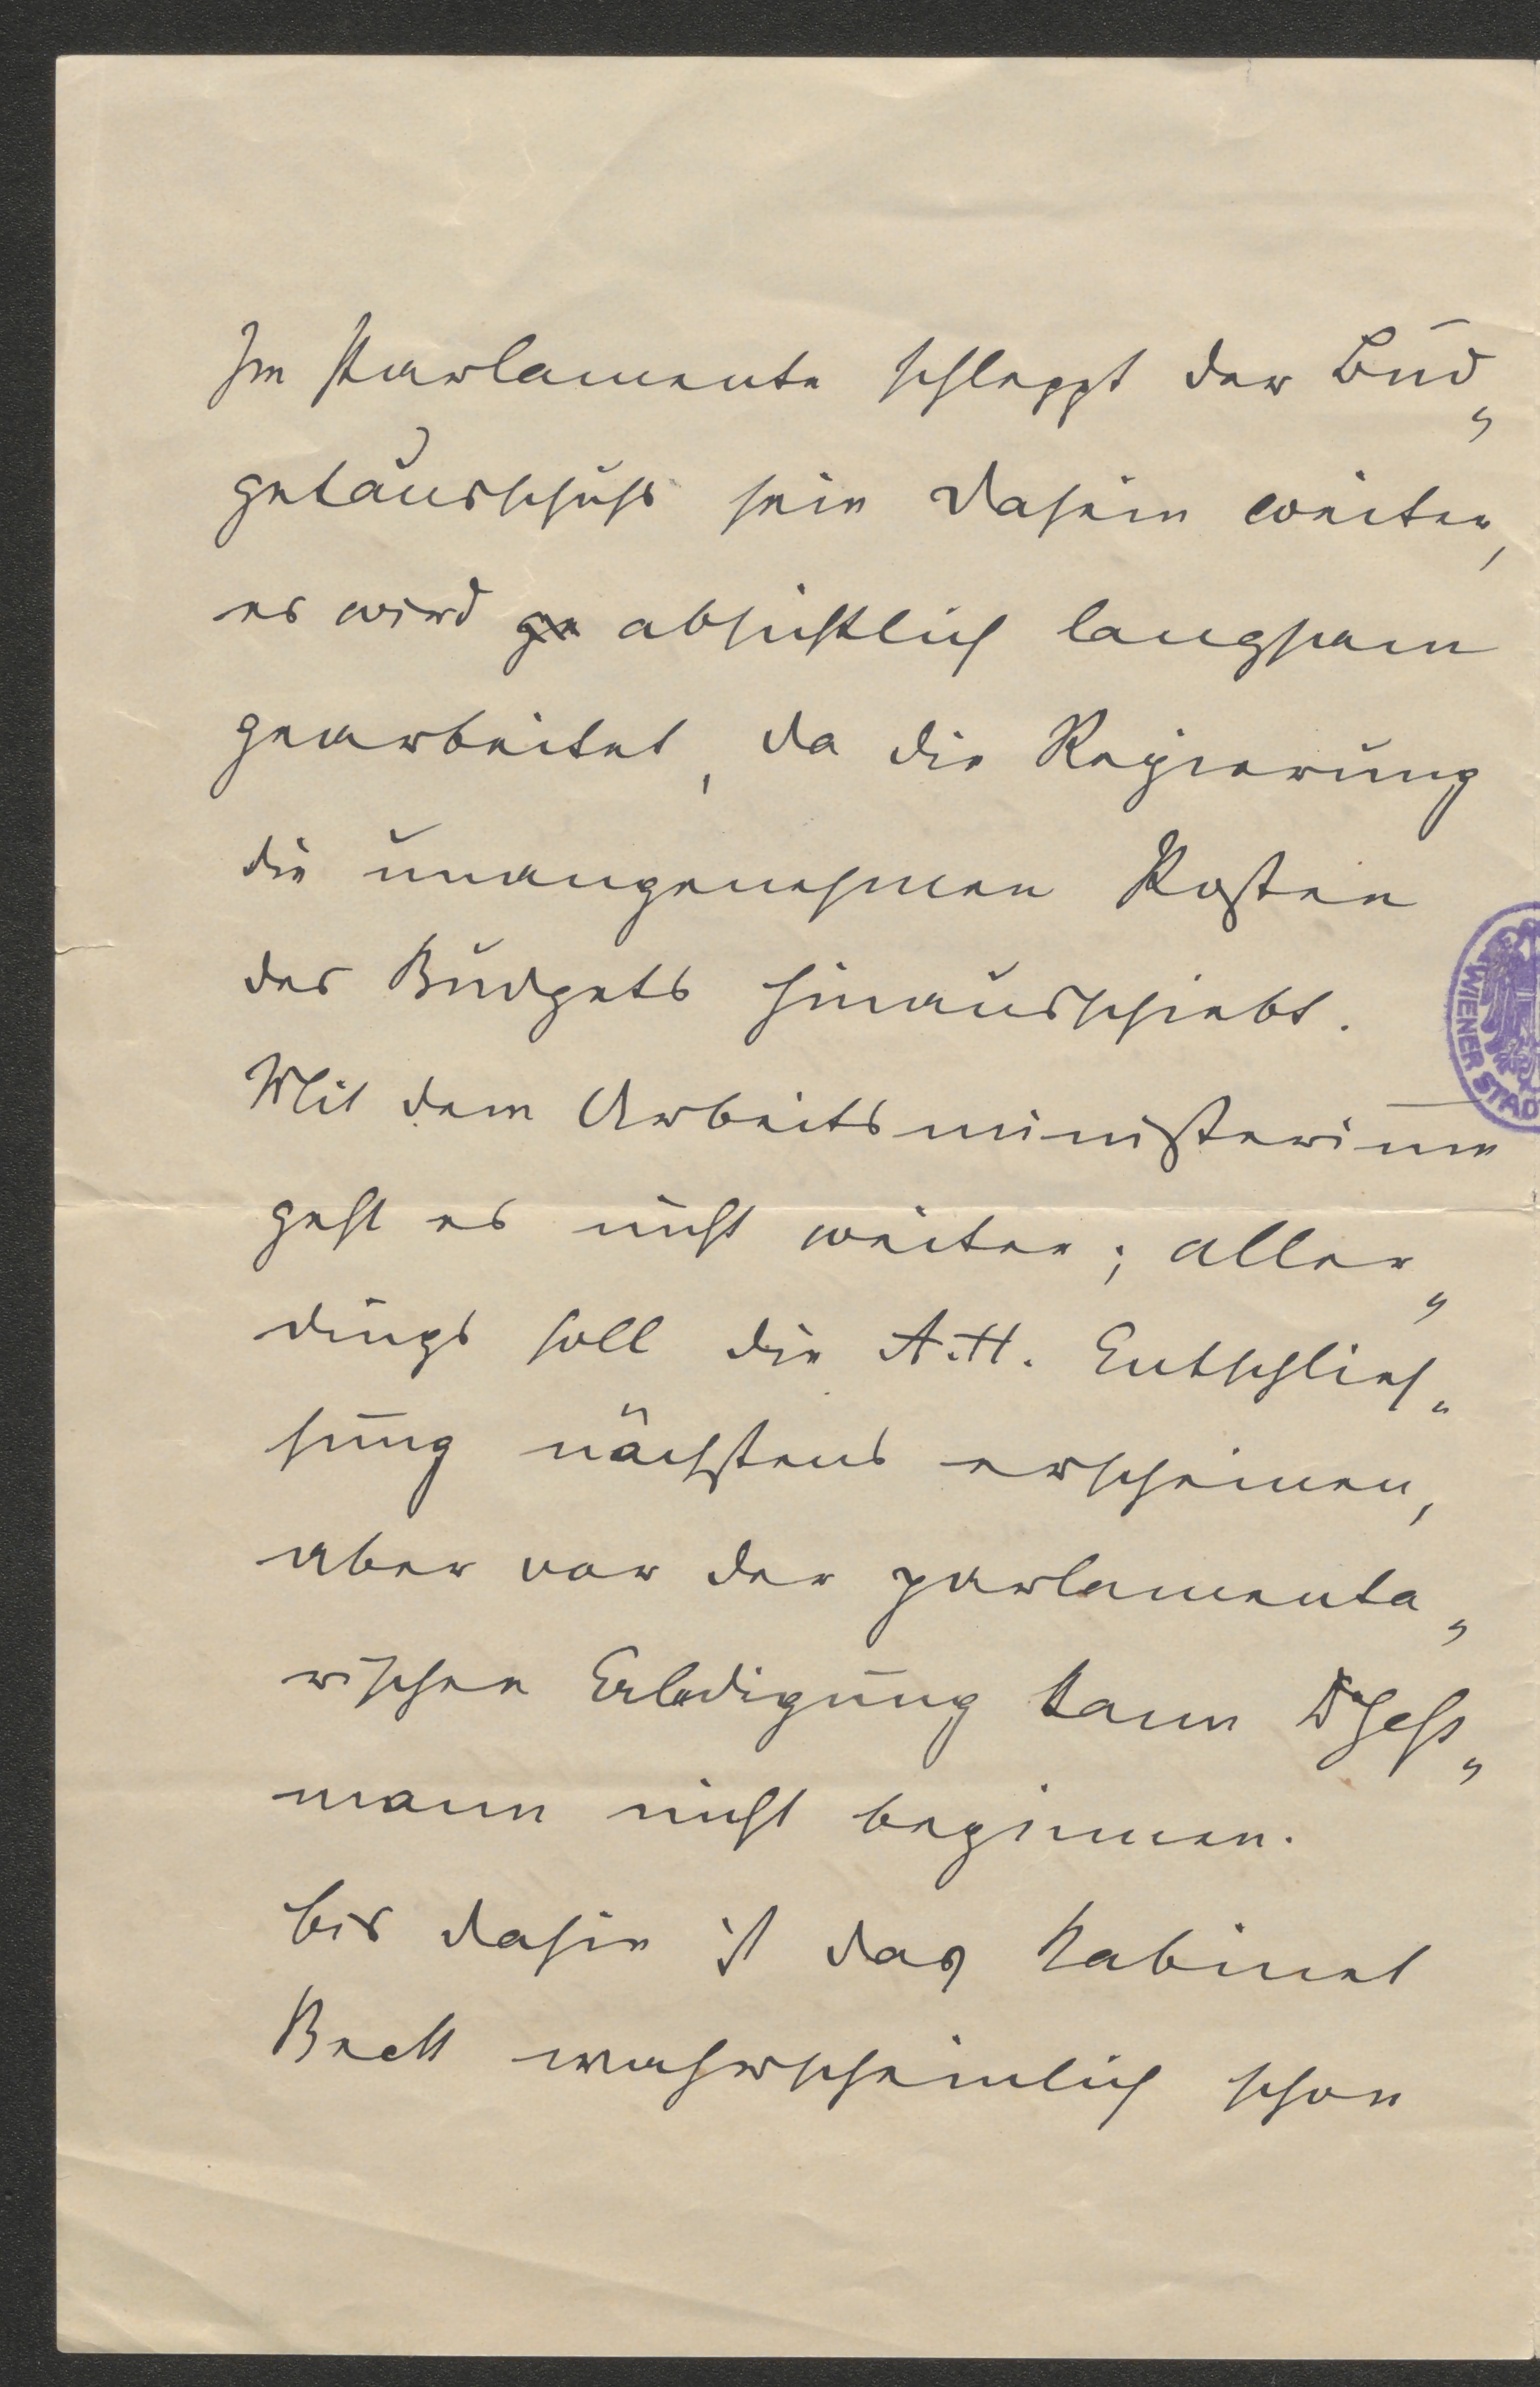 Im Parlamente schleppt der Bud„
getausschuß sein Dasein weiter,
es wird ge absichtlich langsam
gearbeitet, da die Regierung
die unangenehmen Posten
des Budgets hinausschiebt.
Mit dem Arbeitsministerium
geht es nicht weiter; aller„
dings soll die A.H. Entschlies„
sung nächstens erscheinen,
aber vor der parlamenta„
rischen Erledigung kann Dr Geß„
mann nicht beginnen.
bis dahin ist das Kabinet
Beck wahrscheinlich schon
WIENER STAD